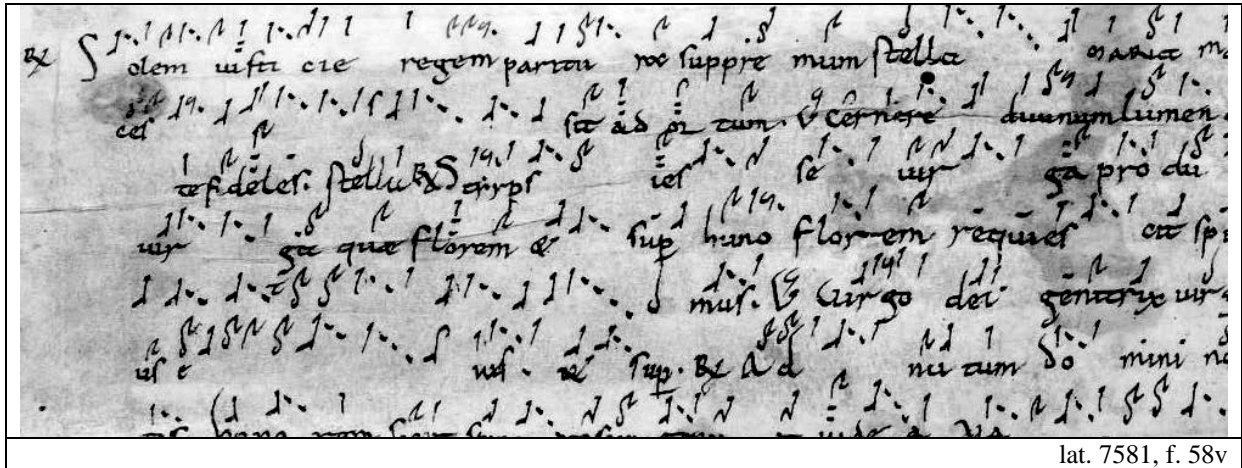 ℟ Solem iusti cie regem paritu roe suppre mum stella maria ma
ces sit ad or tum. ℣ Cernere diuinum lumen
te fideles. Stella ℟ Stirps ies se uir ga pro du
uir ga que florem & sup hunc florem requies cit spi
mus. ℣ Uirgo dei genitrix uir
us e us. & sup. ℟ Ad nu tum do mini no
lat. 7581, f. 58v